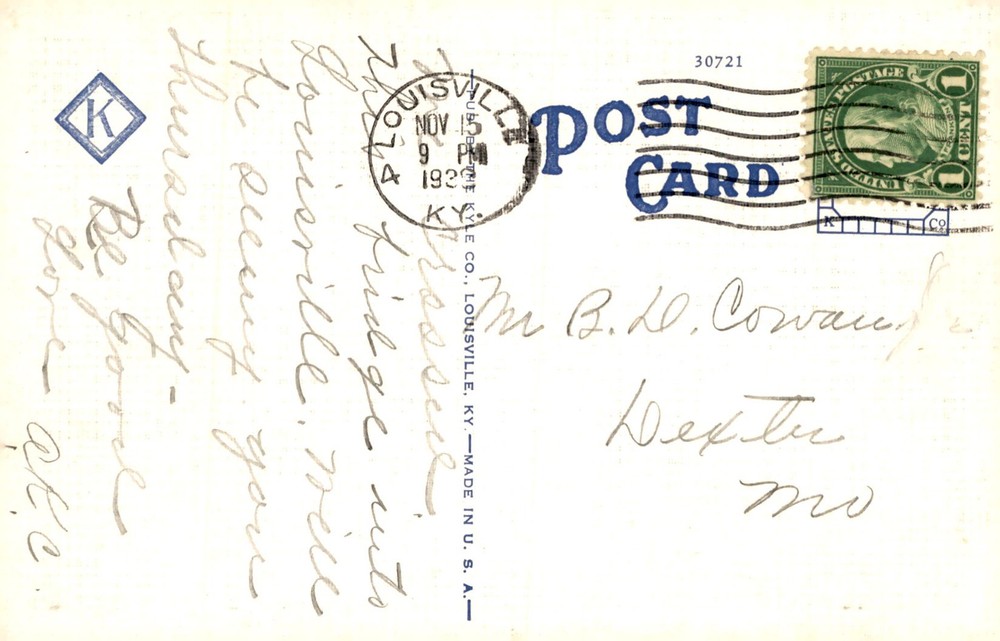 30721
POST
CARD
LOUISVILLE
NOV 15
9 PM
KY.
UNITED STATES POSTAGE
1 CENT 1
K
K Co
PUB. BY THE KYLE CO., LOUISVILLE, KY.—MADE IN U. S. A.—
crossed
this bridge into
Louisville. Will
be seeing you
Thursday-
Be Good
Love - AKC.
Mr B. D. Cowan
Dexter
Mo